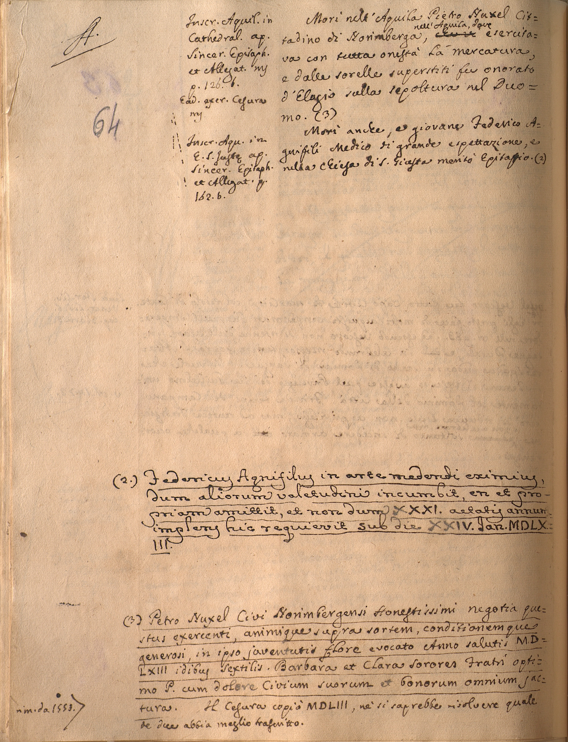 A.
64
Inscr. Aquil. in
Cathedral. ap.
Sincer. Epitaph.
et Allegat. mj
p. 126. b.
Ead. excr. Cesura
mj
Inscr. Aqu. in
E. S. Justæ ap.
Sincer. Epitaph.
et Allegat. p.
162. b.
Morì nell'Aquila Pietro Nuxel Cit=
tadino di Norimberga, nell'Aquila, dove esercita=
va con tutta onestà la mercatura,
e dalle sorelle superstiti fu onorato
d'Elogio sulla sepoltura nel Duo=
mo. (3)
Morì anche, e giovane Federico A=
gnifili Medico di grande espettazione, e
nella Chiesa di S. Giusta meritò Epitaffio. (2)
(2.) Federicus Agnifilus in arte medendi eximius,
dum aliorum valetudini incumbit, en et pro=
priam amittit, et non dum XXXI. aetatis annum
implens hic requievit sub die XXIV. Jan. MDLX=
III.
(3) Petro Nuxel Civi Norimbergensi honestissimi negotia que=
stus exercenti, animique supra sortem, conditionemque
generosi, in ipso juventutis flore evocato Anno salutis MD=
LXIII idibus Sextilis. Barbara et Clara sorores Fratri opti=
mo P. cum dolore Civium suorum et bonorum omnium jac=
tura. Il Cesura copiò MDLIII, nè si saprebbe risolvere quale
de due abbia meglio trascritto.
im. da 1553.